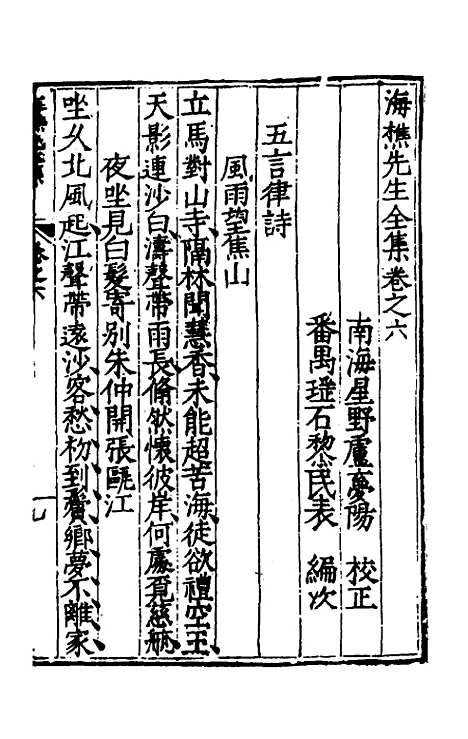 海樵先生全集卷之六
南海星野盧夢陽 校正
番禺瑶石黎民表 編次
五言律詩
風雨望焦山
立馬對山寺隔林聞慧香未能超苦海徒欲禮空王
天影連沙白濤聲帶雨長翛然懷彼岸何處覓慈航
夜坐見白髮寄別朱仲開張甌江
坐久北風起江聲帶遠沙客愁初到鬢鄉夢不離家
卷之六
一